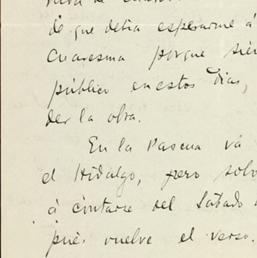 de que debía esperarme á
Cuaresma porque
público en estos días,
der la obra.
En la Pascua vá
el Hidalgo, pero solo
á contarse del Sábado
pués vuelve el verso.